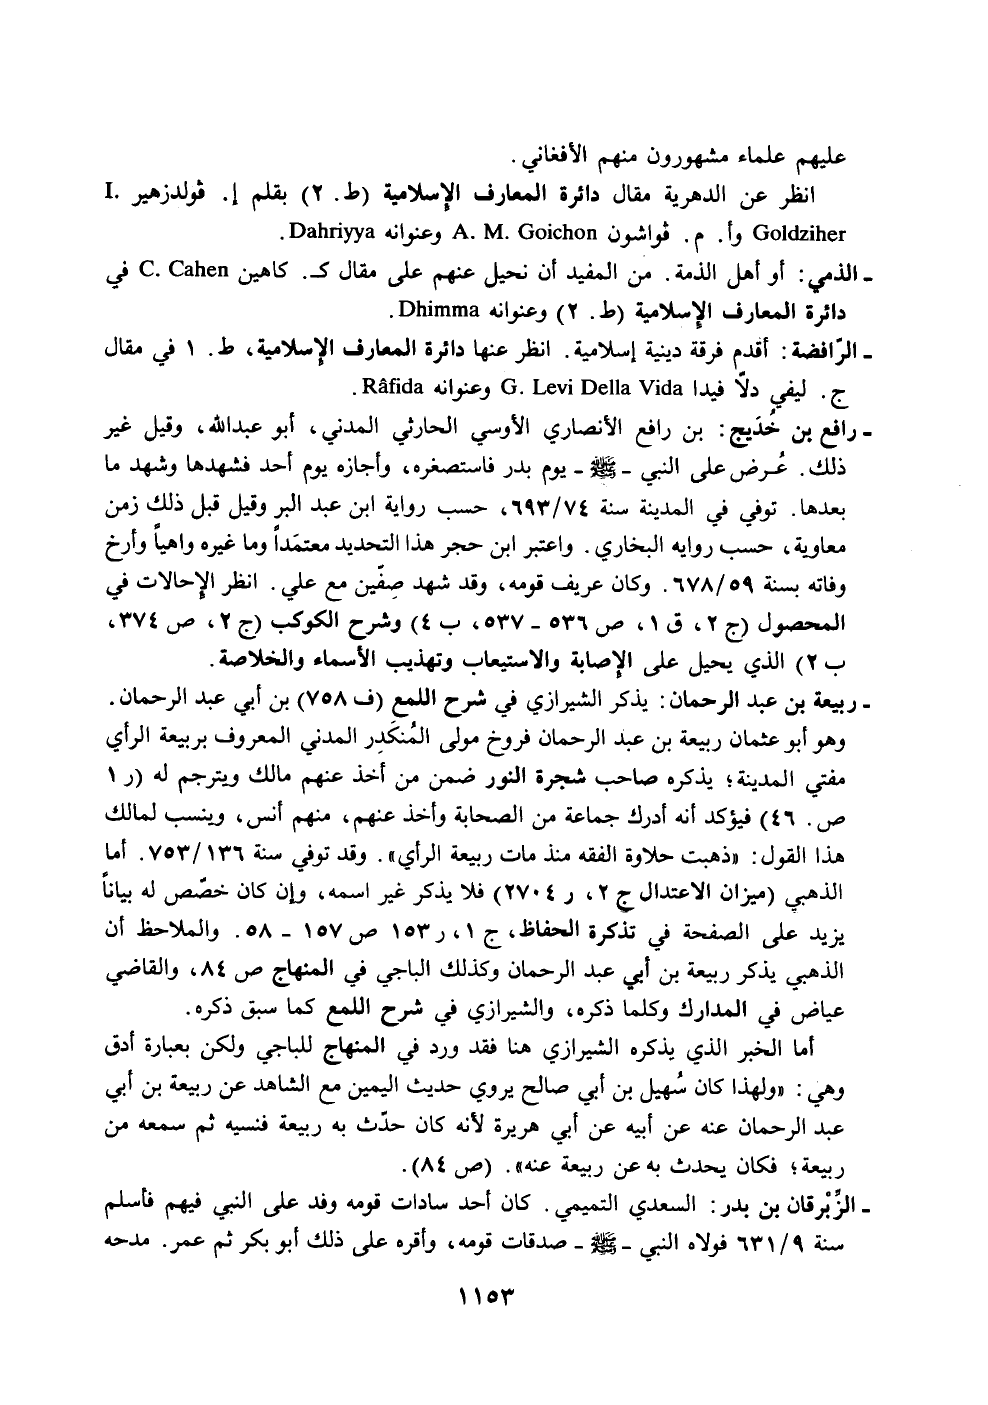 عليهم علماء مشهورون منهم الأفغاني.
انظر عن الدهرية مقال دائرة المعارف الإسلامية (ط. ٢) بقلم إ. ڤولدزهير I.
Goldziher وأ. م. ڤواشون A. M. Goichon وعنوانه Dahriyya.
ـ الذمي: أو أهل الذمة. من المفيد أن نحيل عنهم على مقال كـ. كاهين C. Cahen في
دائرة المعارف الإسلامية (ط. ٢) وعنوانه Dhimma.
ـ الرّافضة: أقدم فرقة دينية إسلامية. انظر عنها دائرة المعارف الإسلامية، ط. ١ في مقال
ج. ليفي دلّا فيدا G. Levi Della Vida وعنوانه Râfida.
ـ رافع بن خُدَيج: بن رافع الأنصاري الأوسي الحارثي المدني، أبو عبدالله، وقيل غير
ذلك. عُرض على النبي ـ ﷺ ـ يوم بدر فاستصغره، وأجازه يوم أحد فشهدها وشهد ما
بعدها. توفي في المدينة سنة ٦٩٣/٧٤، حسب رواية ابن عبد البر وقيل قبل ذلك زمن
معاوية، حسب روايه البخاري. واعتبر ابن حجر هذا التحديد معتمَداً وما غيره واهياً وأرخ
وفاته بسنة ٦٧٨/٥٩. وكان عريف قومه، وقد شهد صِفّين مع علي. انظر الإحالات في
المحصول (ج ٢، ق ١، ص ٥٣٦ ـ ٥٣٧، ب ٤) وشرح الكوكب (ج ٢، ص ٣٧٤،
ب ٢) الذي يحيل على الإصابة والاستيعاب وتهذيب الأسماء والخلاصة.
ـ ربيعة بن عبد الرحمان: يذكر الشيرازي في شرح اللمع (ف ٧٥٨) بن أبي عبد الرحمان.
وهو أبو عثمان ربيعة بن عبد الرحمان فروخ مولى المُنكَدِر المدني المعروف بربيعة الرأي
مفتي المدينة؛ يذكره صاحب شجرة النور ضمن من أخذ عنهم مالك ويترجم له (ر ١
ص. ٤٦) فيؤكد أنه أدرك جماعة من الصحابة وأخذ عنهم، منهم أنس، وينسب لمالك
هذا القول: «ذهبت حلاوة الفقه منذ مات ربيعة الرأي». وقد توفي سنة ٧٥٣/١٣٦. أما
الذهبي (ميزان الاعتدال ج ٢، ر ٢٧٠٤) فلا يذكر غير اسمه، وإن كان خصّص له بياناً
يزيد على الصفحة في تذكرة الحفاظ، ج ١، ر ١٥٣ ص ١٥٧ ـ ٥٨. والملاحظ أن
الذهبي يذكر ربيعة بن أبي عبد الرحمان وكذلك الباجي في المنهاج ص ٨٤، والقاضي
عياض في المدارك وكلما ذكره، والشيرازي في شرح اللمع كما سبق ذكره.
أما الخبر الذي يذكره الشيرازي هنا فقد ورد في المنهاج للباجي ولكن بعبارة أدق
وهي: «ولهذا كان سُهيل بن أبي صالح يروي حديث اليمين مع الشاهد عن ربيعة بن أبي
عبد الرحمان عنه عن أبيه عن أبي هريرة لأنه كان حدّث به ربيعة فنسيه ثم سمعه من
ربيعة؛ فكان يحدث به عن ربيعة عنه». (ص ٨٤).
ـ الزِّبْرِقان بن بدر: السعدي التميمي. كان أحد سادات قومه وفد على النبي فيهم فأسلم
سنة ٦٣١/٩ فولاه النبي ـ ﷺ ـ صدقات قومه، وأقره على ذلك أبو بكر ثم عمر. مدحه
١١٥٣